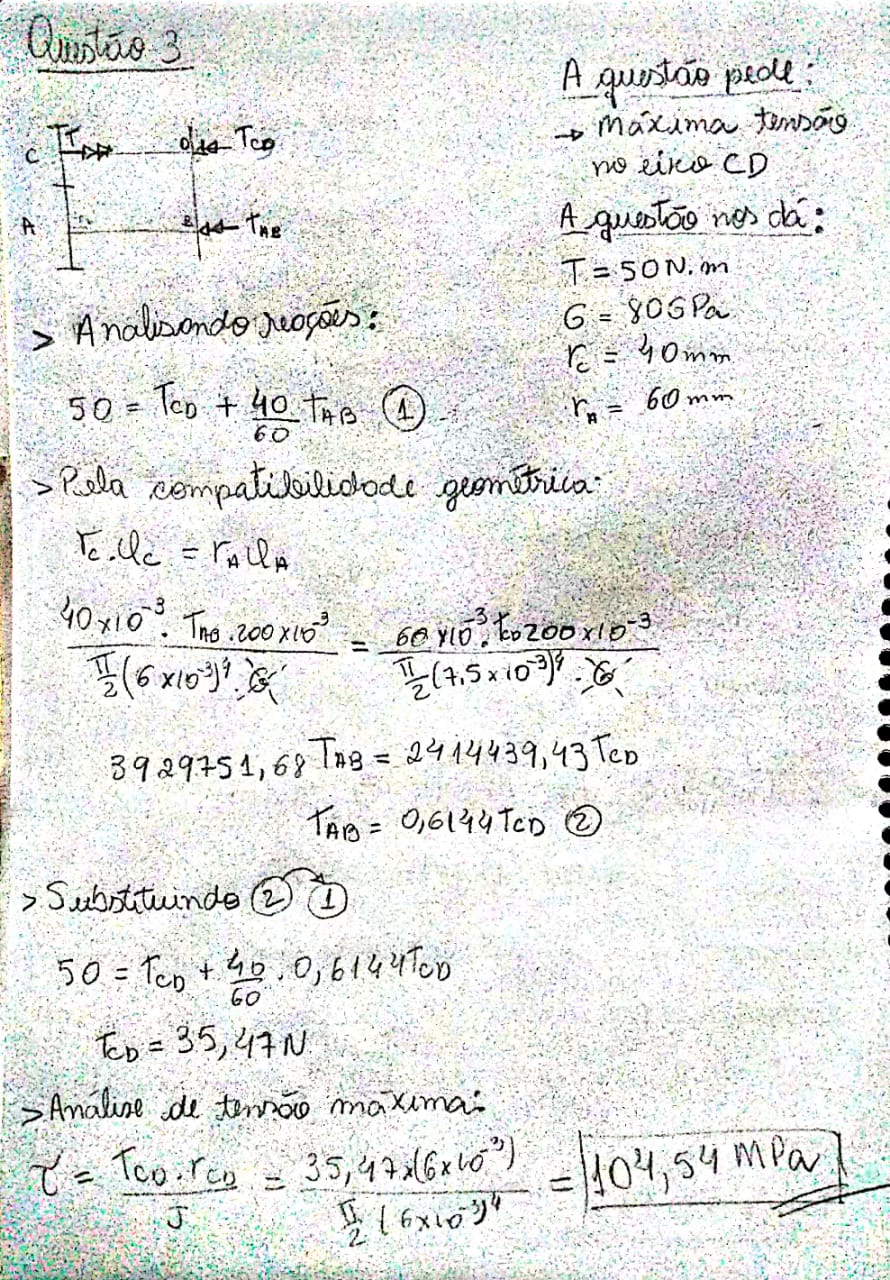 Questão 3
C T D TCD
A B TAB
A questão pede:
→ Máxima tensão
no eixo CD
A questão nos dá:
T = 50 N.m
G = 80GPa
rc = 40mm
rA = 60 mm
> Analisando reações:
50 = TCD + 40/60 TAB ①
> Pela compatibilidade geométrica:
rc.φc = rAφA
40x10⁻³. TAB.200x10⁻³ / π/2 (6x10⁻³)⁴.G = 60x10⁻³.TCD200x10⁻³ / π/2 (7,5x10⁻³)⁴.G
3929751,68 TAB = 2414439,43TCD
TAB = 0,6144TCD ②
> Substituindo ② ①
50 = TCD + 40/60 . 0,6144TCD
TCD = 35,47N
> Análise de tensão máxima:
τ = TCD.rCD / J = 35,47x(6x10⁻³) / π/2 (6x10⁻³)⁴ = 104,54 MPa